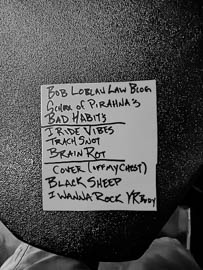 BOB LOBLAW LAW BLOG
SCHOOL OF PIRAHNA'S
BAD HABITS
I RIDE VIBES
TRACH SNOT
BRAIN ROT
COVER (OFF MY CHEST)
BLACK SHEEP
I WANNA ROCK YR BODY